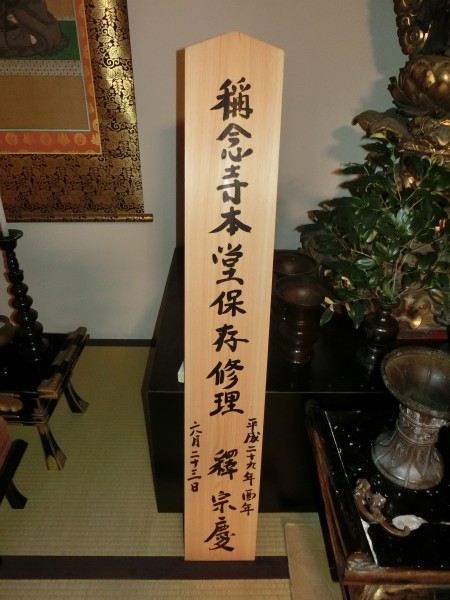 稱念寺本堂保存修理
平成二十九年酉年
六月二十三日
釋宗慶